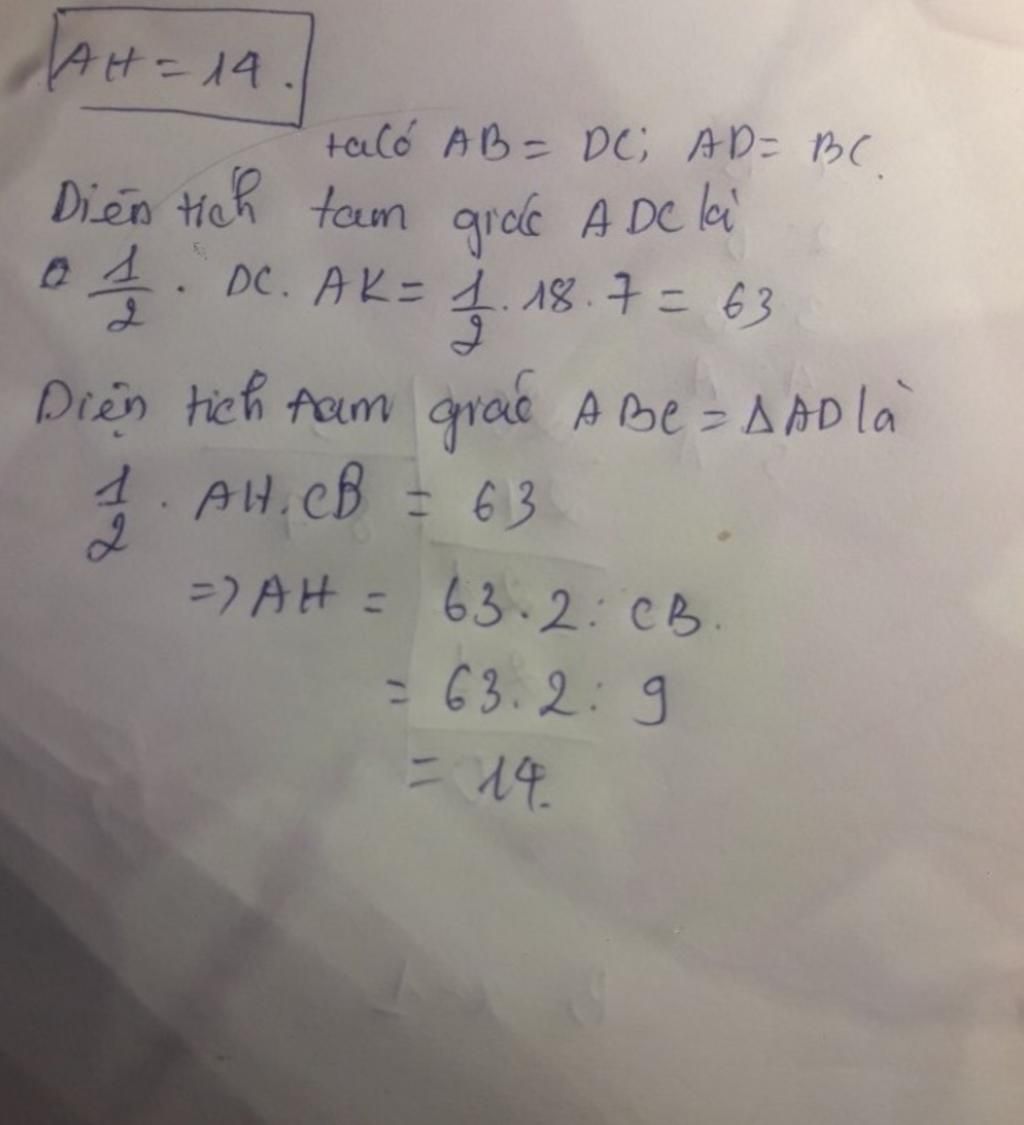 AH = 14.
ta có AB = DC; AD = BC.
Diện tích tam giác ADC là
1/2 . DC. AK = 1/2 . 18 . 7 = 63
Diện tích tam giác ABC = ΔAD là
1/2 . AH. CB = 63
=> AH = 63. 2 : CB.
= 63. 2 : 9
= 14.